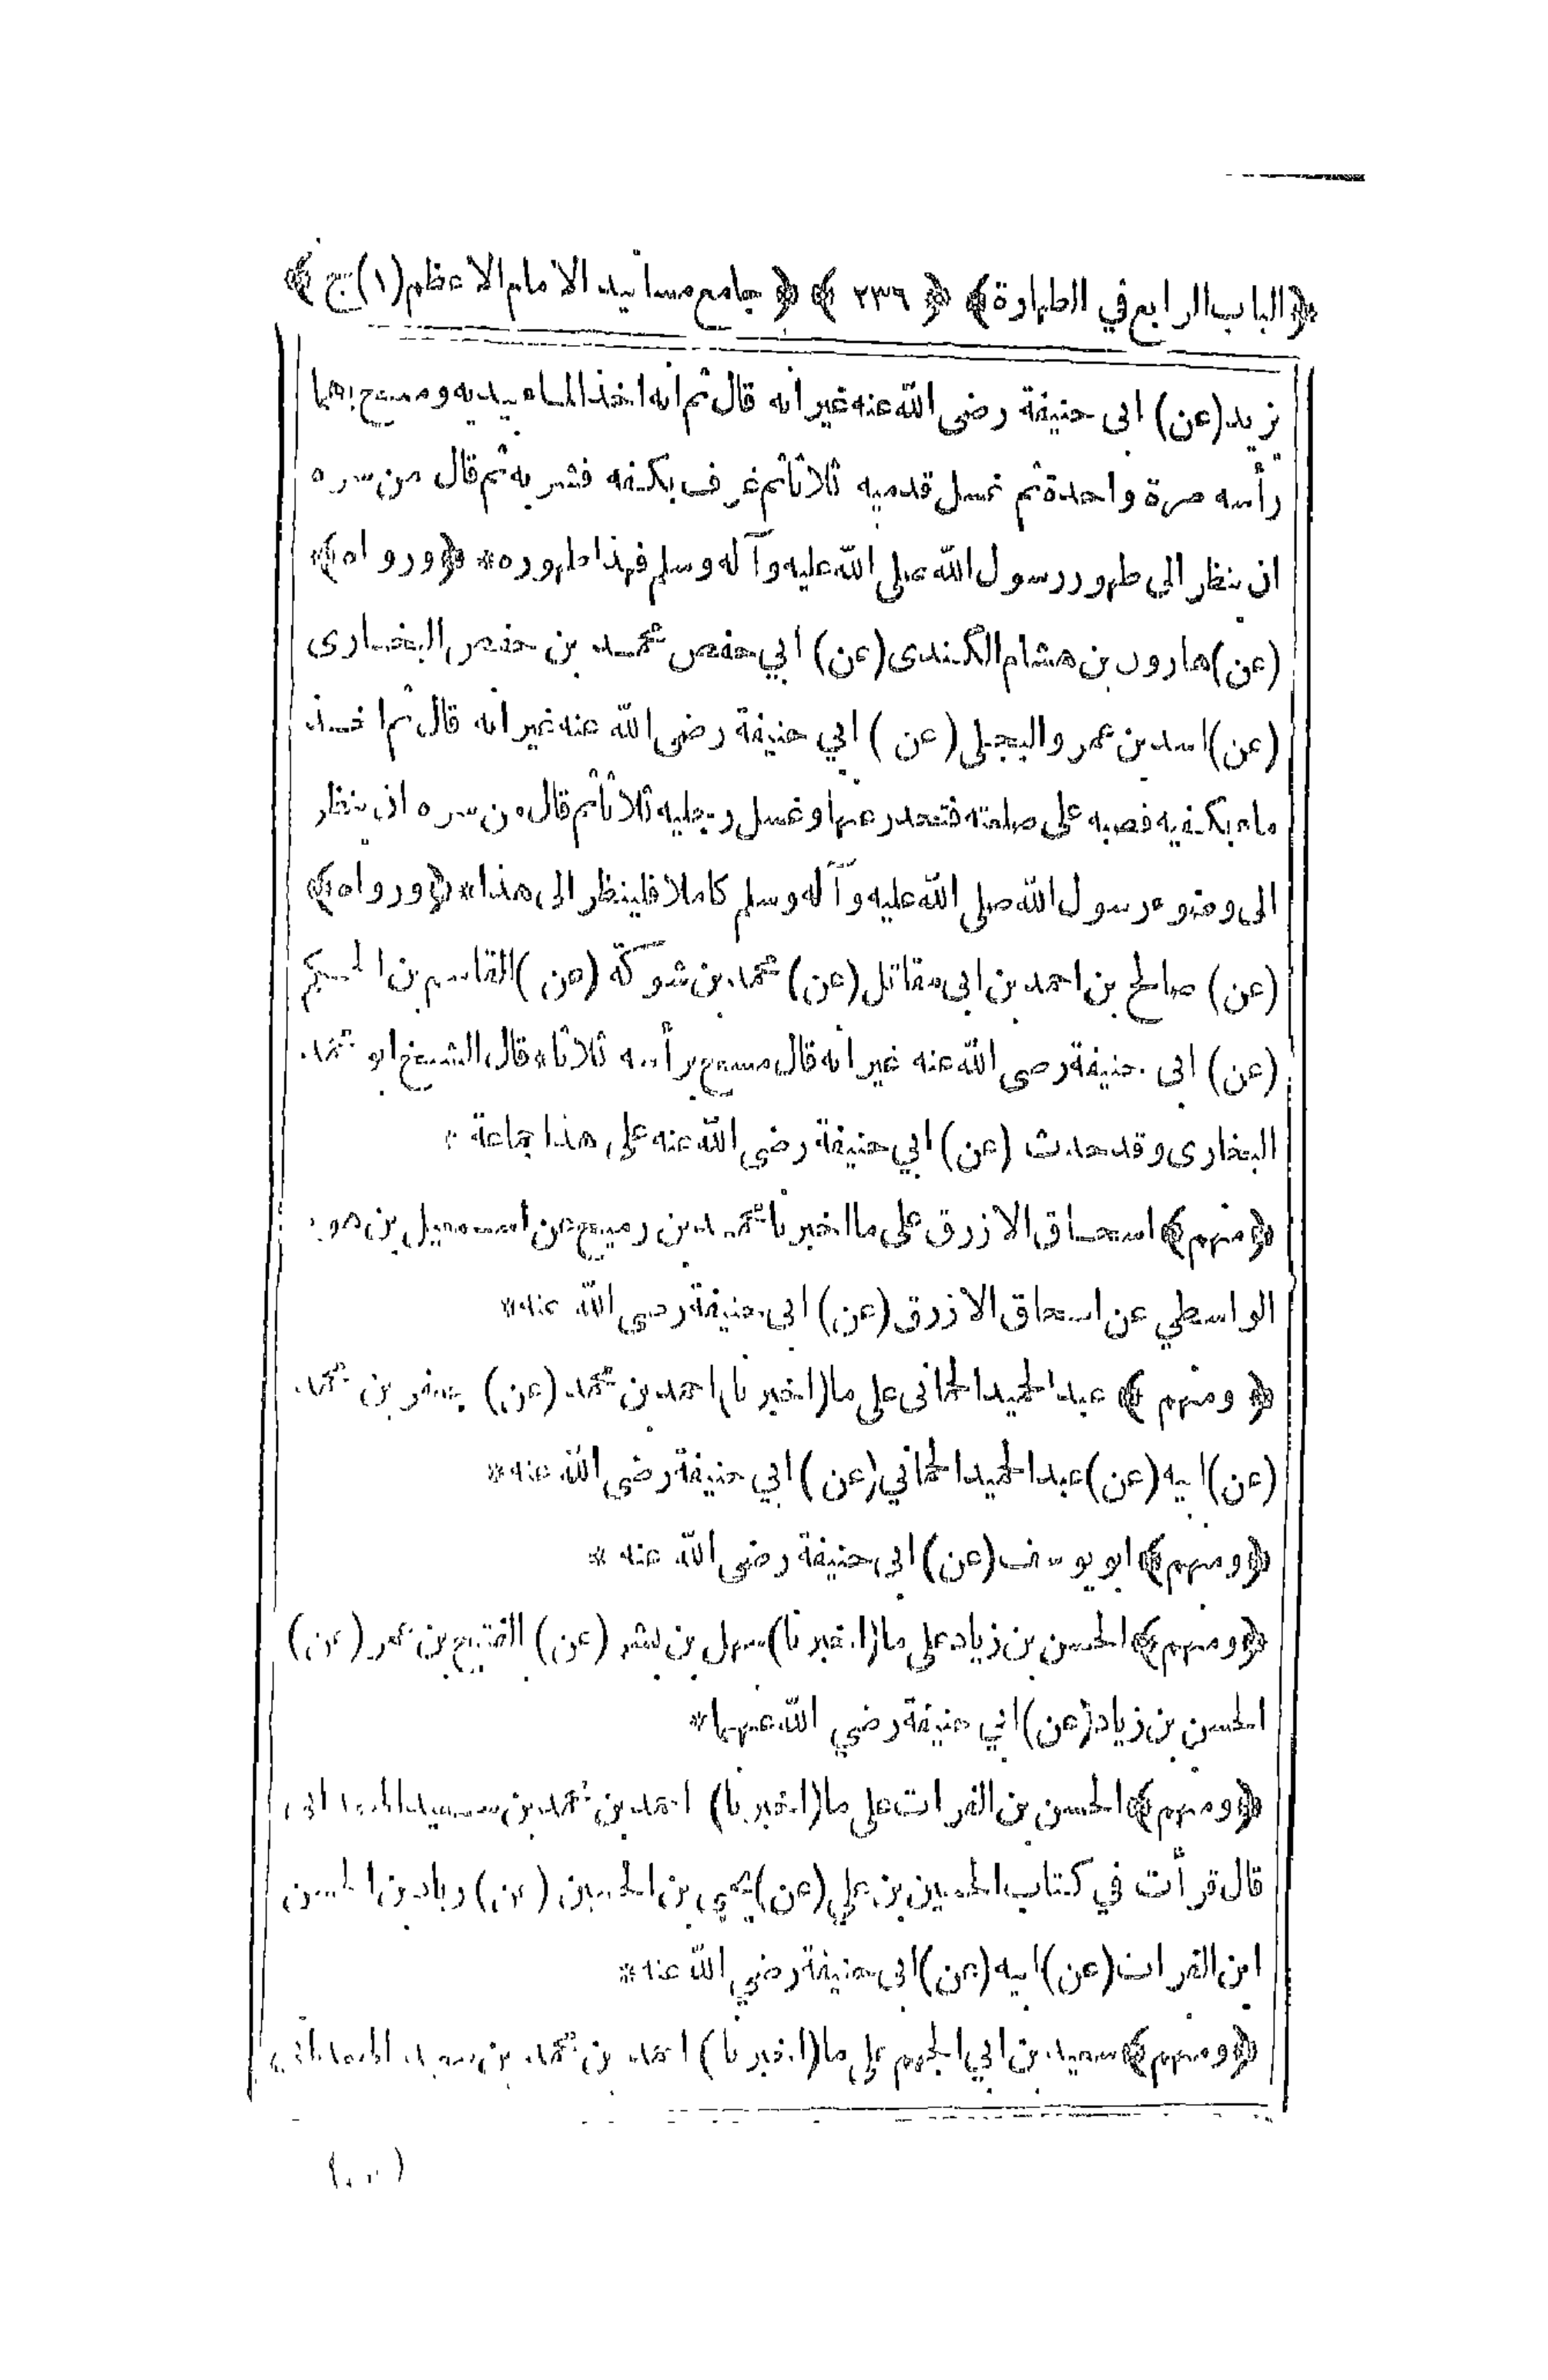 ﴿الباب الرابع في الطهارة﴾ ﴿٢٣٦﴾ ﴿جامع مسانيد الامام الاعظم(١)ج﴾
يزيد(عن) ابى حنيفة رضى الله عنه غير انه قال ثم انه اخذ الماء بيديه و مسح بهما
رأسه مرة واحدة ثم غسل قدميه ثلاثا ثم غرف بكفه فشربه ثم قال من سره
ان ينظر الى طهور رسول الله صلى الله عليه وآله وسلم فهذا طهوره* ﴿ورواه﴾
(عن)هارون بن هشام الكندى(عن) ابي حفص محمد بن حفص البخارى
(عن)اسد بن عمر والبجلى (عن) ابي حنيفة رضى الله عنه غير انه قال ثم اخذ
ماء بكفيه فصبه على صلعته فتحدر عنها وغسل رجليه ثلاثا ثم قال من سره ان ينظر
الى وضوء رسول الله صلى الله عليه وآله وسلم كاملا فلينظر الى هذا* ﴿ورواه﴾
(عن) صالح بن احمد بن ابى مقاتل(عن) محمد بن شوكة (عن)القاسم بن الحكم
(عن) ابى حنيفة رضى الله عنه غير انه قال مسح برأسه ثلاثا* قال الشيخ ابو محمد
البخارى وقد حدث (عن) ابي حنيفة رضى الله عنه على هذا جماعة*
﴿منهم﴾ اسحاق الازرق على ما اخبرنا محمد بن رميح عن اسمعيل بن هود
الواسطي عن اسحاق الازرق(عن) ابى حنيفة رضى الله عنه*
﴿ومنهم﴾ عبد الحميد الحمانى على ما(اخبرنا)احمد بن محمد (عن) جعفر بن محمد
(عن)ابيه(عن)عبد الحميد الحماني(عن)ابي حنيفة رضى الله عنه*
﴿ومنهم﴾ ابو يوسف(عن)ابى حنيفة رضى الله عنه*
﴿ومنهم﴾ الحسن بن زياد على ما(اخبرنا)سهل بن بشر (عن) الفتح بن عمر (عن)
الحسن بن زياد(عن)ابي حنيفة رضي الله عنهما*
﴿ومنهم﴾ الحسن بن الفرات على ما(اخبرنا) احمد بن محمد بن سعيد الهمدانى
قال قرأت في كتاب الحسين بن علي(عن)يحيي بن الحسين (عن)زياد بن الحسن
ابن الفرات(عن)ابيه(عن)ابى حنيفة رضي الله عنه*
﴿ومنهم﴾ سعيد بن ابي الجهم على ما(اخبرنا) احمد بن محمد بن سعيد الهمدانى